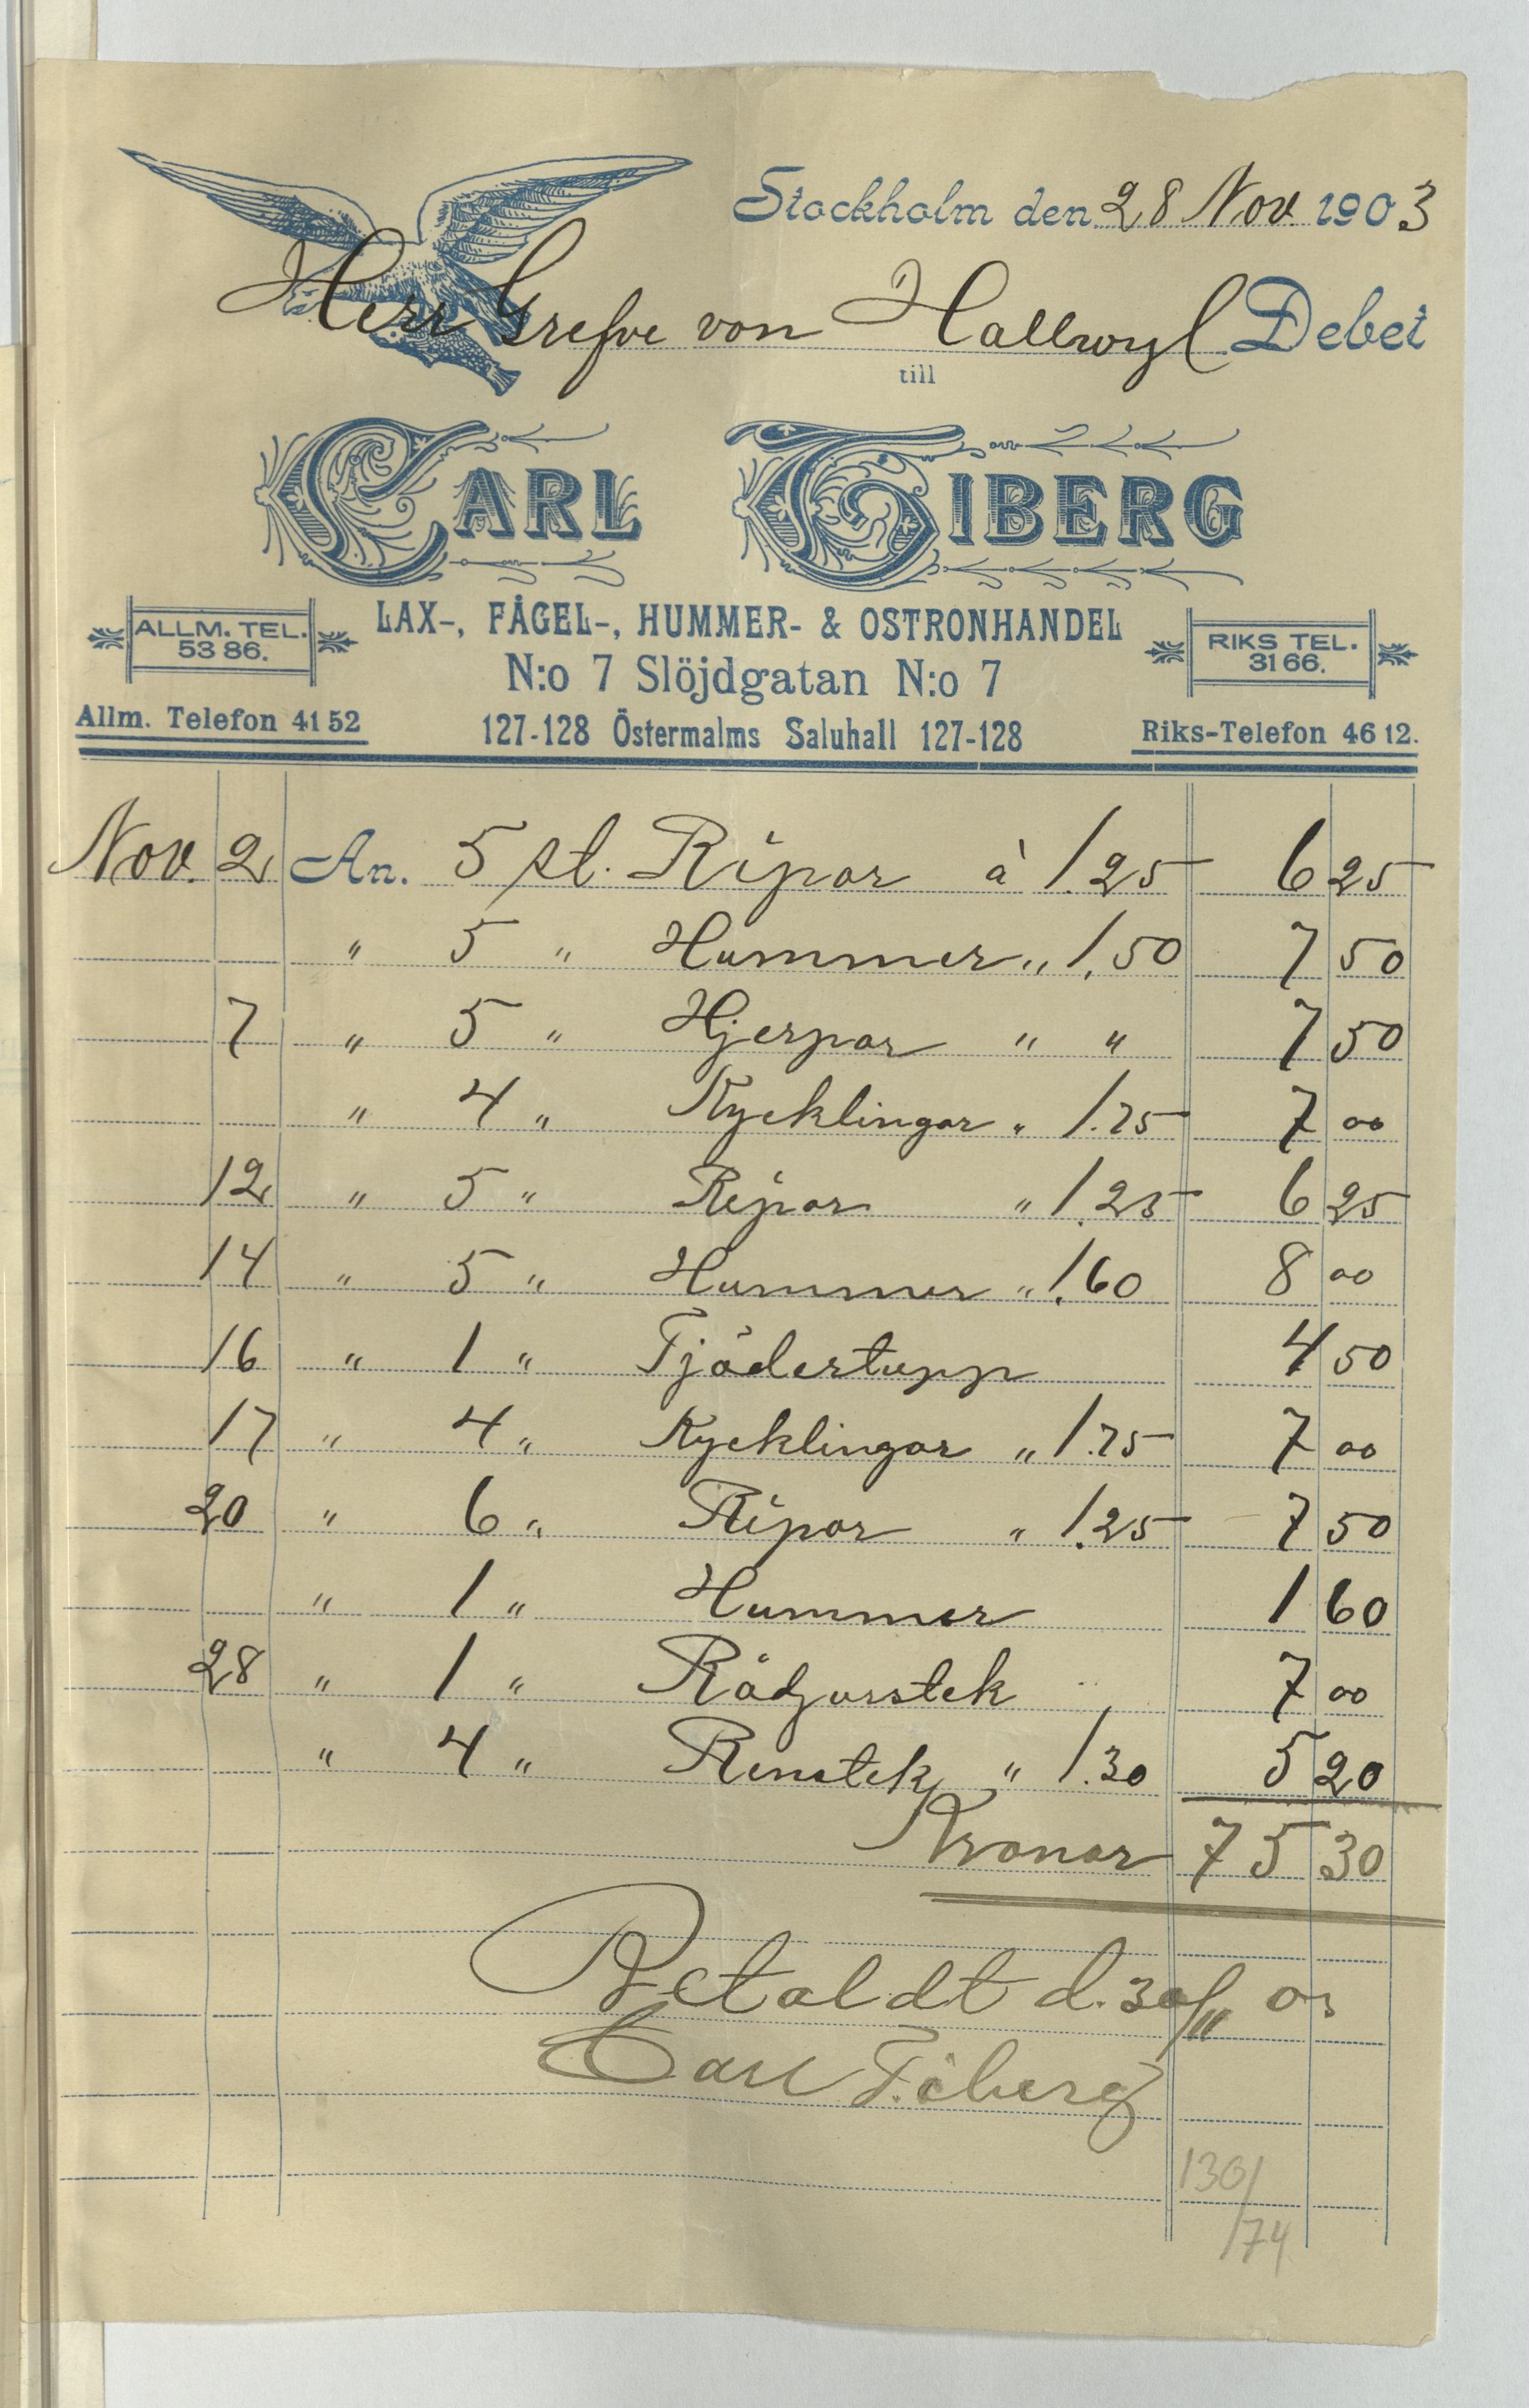 Stockholm den 28 Nov. 1903
Herr Grefve von Hallwyl Debet
till
CARL TIBERG
LAX-, FÅGEL-, HUMMER- & OSTRONHANDEL
ALLM. TEL.
53 86.
RIKS TEL.
31 66.
N:o 7 Slöjdgatan N:o 7
Allm. Telefon 41 52
127-128 Östermalms Saluhall 127-128
Riks-Telefon 46 12.
Nov. 2 An. 5 st. Ripor à 1.25 6 25
" 5 " Hummer " 1.50 7 50
7 " 5 " Hjerpar " " 7 50
" 4 " Kycklingar " 1.75 7 00
12 " 5 " Ripor " 1.25 6 25
14 " 5 " Hummer " 1.60 8 00
16 " 1 " Tjädertupp 4 50
17 " 4 " Kycklingar " 1.75 7 00
20 " 6 " Ripor " 1.25 7 50
" 1 " Hummer 1 60
28 " 1 " Rådjursstek 7 00
" 4 " Renstek " 1.30 5 20
Kronor 75 30
Betaldt d. 30/11 03
Carl Tiberg
130/
174